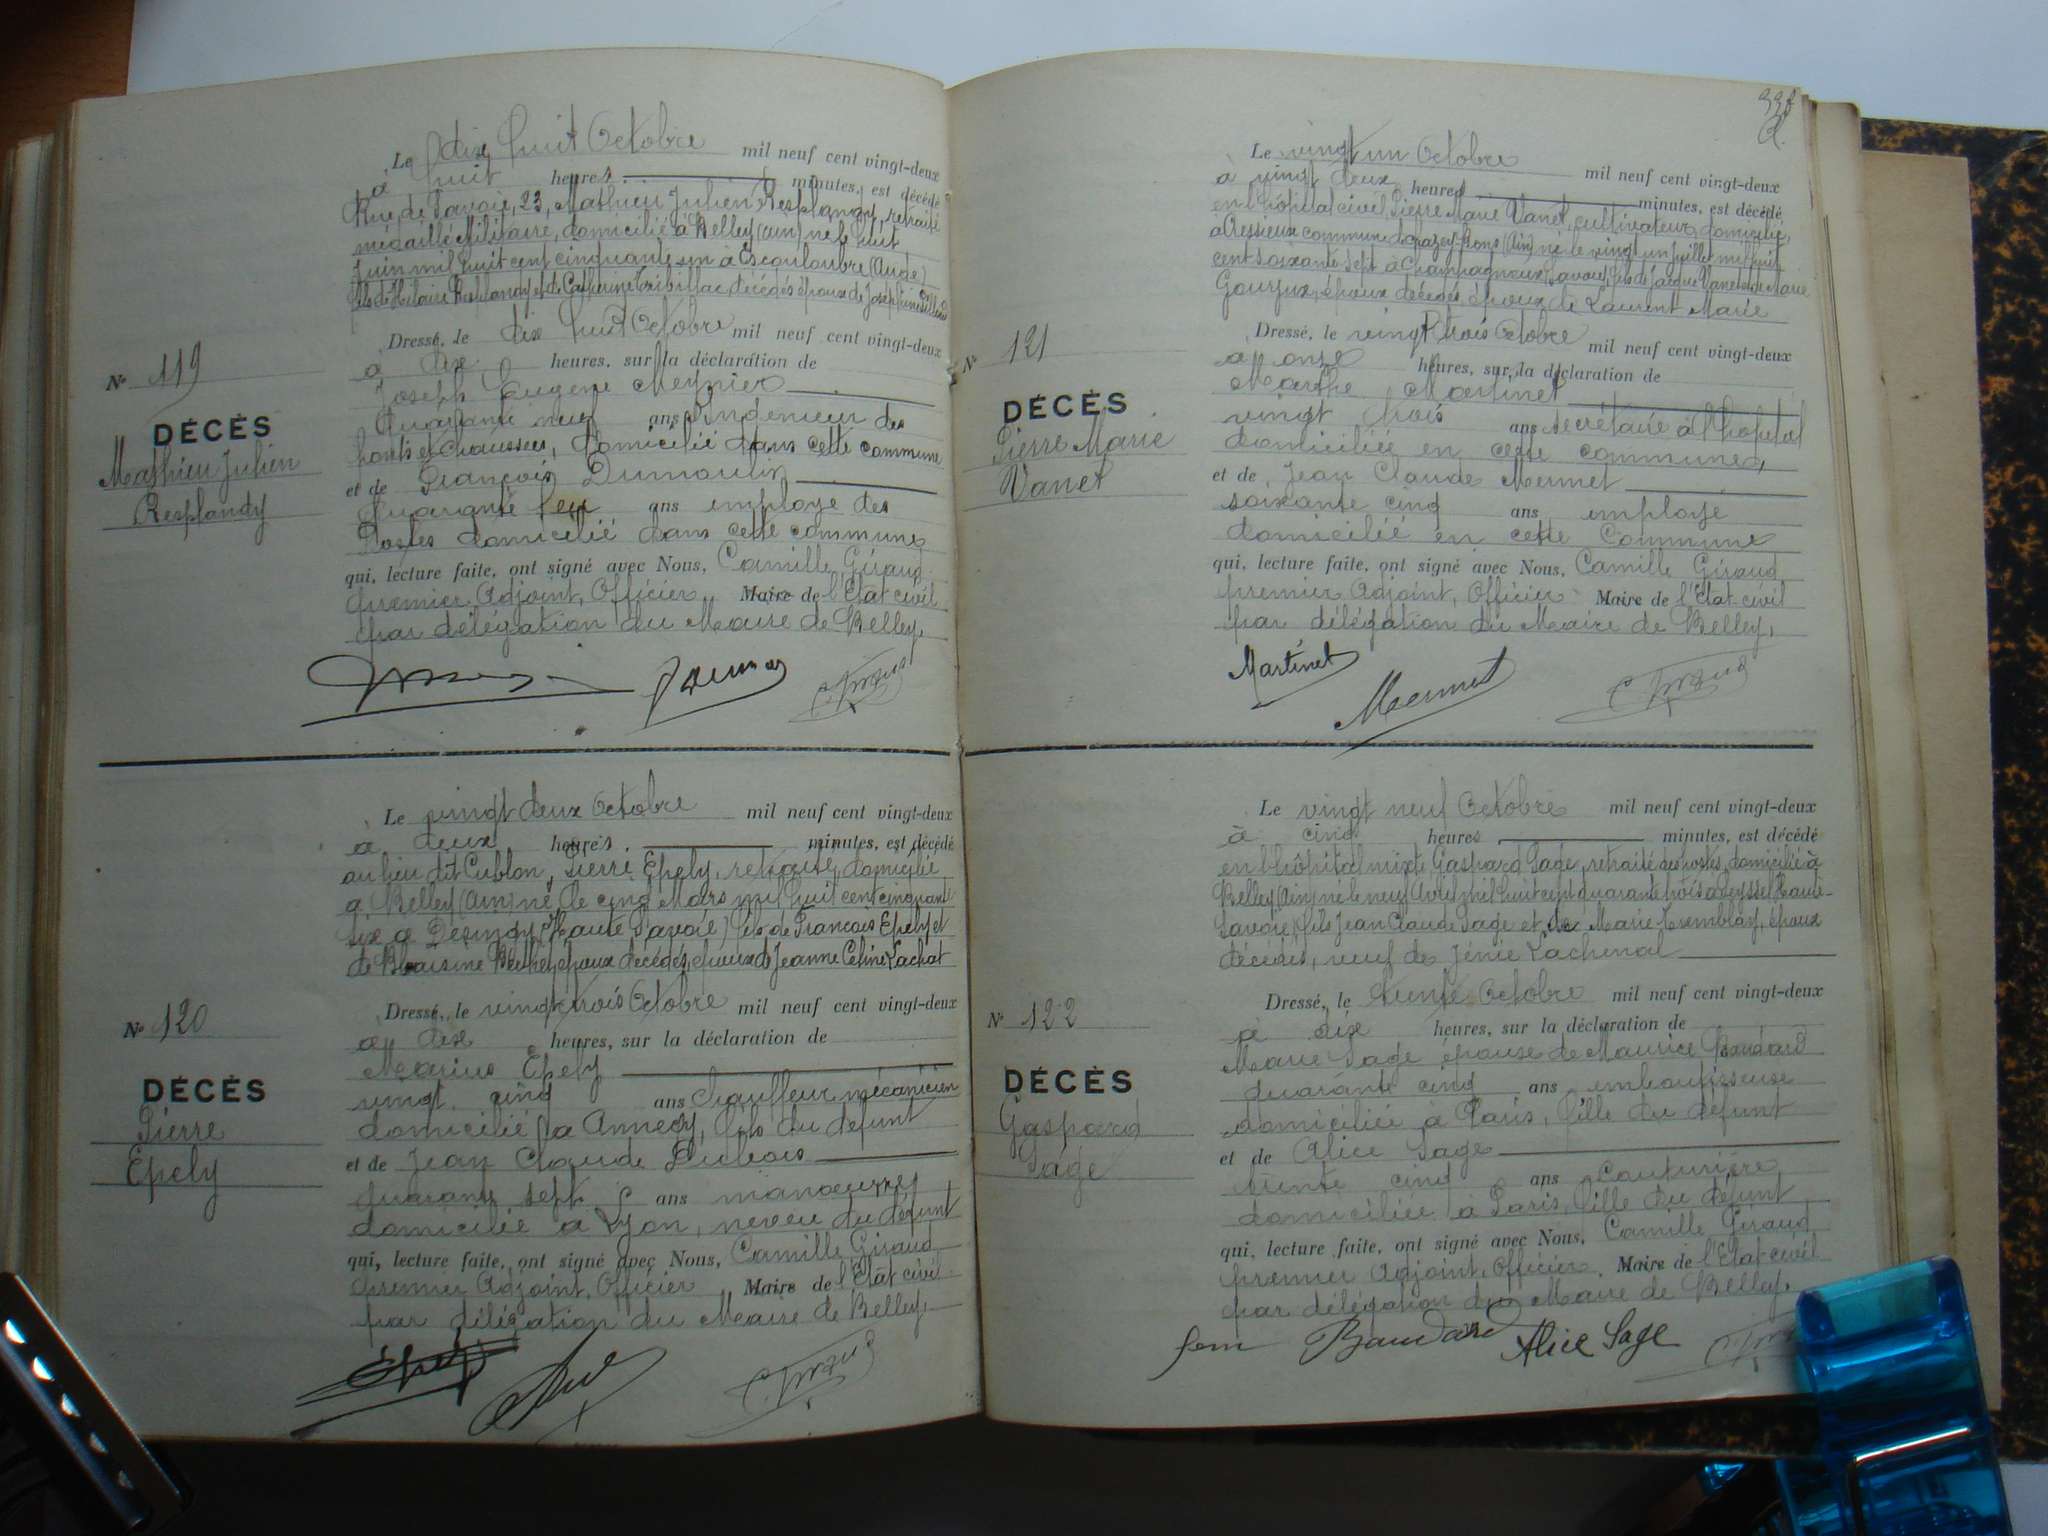 Le dix huit Octobre mil neuf cent vingt-deux
à huit heures minutes, est décédé
Rue de Savoie, 23, Mathieu Julien Resplandy, retraité
médaillé Militaire, domicilié à Belley (Ain) né le huit
Juin mil huit cent cinquante un à Escouloubre (Aude)
fils de Hilaire Resplandy et de Catherine décédés époux de Joséphine
Dressé, le dix huit Octobre mil neuf cent vingt-deux
à dix heures, sur la déclaration de
Joseph Eugène Meynier
Quarante neuf ans Ingénieur des
Ponts et Chaussées, domicilié dans cette commune
et de François Dumoulin
Quarante ans employé des
Postes domicilié dans cette commune
qui, lecture faite, ont signé avec Nous, Camille Giraud
premier Adjoint, Officier Maire de l'Etat civil
par délégation du Maire de Belley.
N° 119
DÉCÈS
Mathieu Julien
Resplandy
Le vingt deux Octobre mil neuf cent vingt-deux
à deux heures minutes, est décédé
au lieu dit Cublon, Pierre Epely, retraité, domicilié
à Belley (Ain) né le cinq Mars mil huit cent cinquante
six à (Haute Savoie) fils de François Epely et
de époux décédés, époux de Jeanne Céline Lachat
Dressé, le vingt trois Octobre mil neuf cent vingt-deux
à dix heures, sur la déclaration de
Marius Epely
vingt cinq ans chauffeur mécanicien
domicilié à Annecy, fils du défunt
et de Jean Claude Dubois
quarante sept ans manœuvre
domicilié à Lyon, neveu du défunt
qui, lecture faite, ont signé avec Nous, Camille Giraud
premier Adjoint, Officier Maire de l'Etat civil
par délégation du Maire de Belley.
N° 120
DÉCÈS
Pierre
Epely
Epely
C. Giraud
Le vingt un Octobre mil neuf cent vingt-deux
à vingt deux heures minutes, est décédé
en l'hôpital civil Pierre Marie Vanet, cultivateur, domicilié
à Cressieux commune de Chazey-Bons (Ain) né le vingt un juillet mil huit
cent soixante sept à Champagneux, Savoie, fils de Jacque Vanet et de Marie
époux décédés, époux de Laurent Marie
Dressé, le vingt trois Octobre mil neuf cent vingt-deux
à onze heures, sur la déclaration de
Marthe Martinet
vingt trois ans secrétaire à l'hôpital
domiciliée en cette commune,
et de Jean Claude Mermet
soixante cinq ans employé
domicilié en cette Commune
qui, lecture faite, ont signé avec Nous, Camille Giraud
premier Adjoint, Officier Maire de l'Etat-civil
par délégation du Maire de Belley.
N° 121
DÉCÈS
Pierre Marie
Vanet
Martinet
Mermet
C. Giraud
Le vingt neuf Octobre mil neuf cent vingt-deux
à cinq heures minutes, est décédé
en l'hôpital mixte Gaspard Sage, retraité des postes, domicilié à
Belley (Ain) né le neuf Avril mil huit cent quarante trois à Seyssel (Haute-
Savoie) fils Jean Claude Sage et de Marie Tremblay, époux
décédés, veuf de Jénie Lachenal
Dressé, le trente Octobre mil neuf cent vingt-deux
à dix heures, sur la déclaration de
Marie Sage épouse de Maurice Baudard
quarante cinq ans emboutisseuse
domiciliée à Paris, fille du défunt
et de Alice Sage
trente cinq ans Couturière
domiciliée à Paris, fille du défunt
qui, lecture faite, ont signé avec Nous, Camille Giraud
premier Adjoint, Officier Maire de l'Etat civil
par délégation du Maire de Belley.
N° 122
DÉCÈS
Gaspard
Sage
fem Baudard Alice Sage